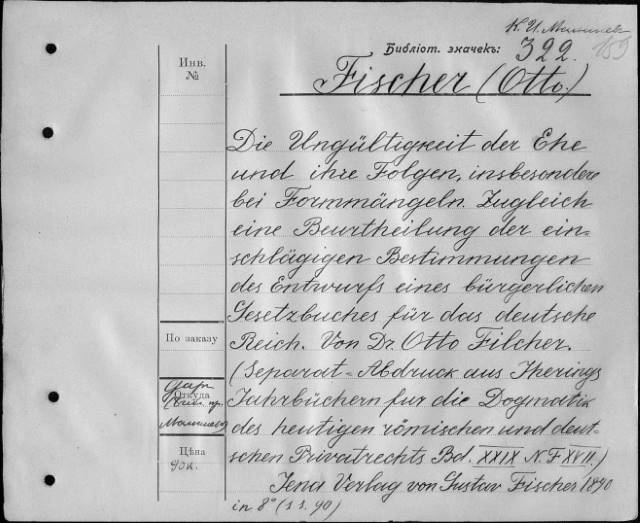 К. И. Малышев
Библіот. значекъ: 322. 159
Fischer (Otto.)
Инв.
№
Die Ungültigkeit der Ehe
und ihre Folgen, insbesondere
bei Formmängeln. Zugleich
eine Beurtheilung der ein-
schlägigen Bestimmungen
des Entwurfs eines bürgerlichen
Gesetzbuches für das deutsche
Reich. Von Dr. Otto Filcher.
(Separat-Abdruck aus Iherings
Jahrbüchern fur die Dogmatik
des heutigen römischen und deut-
schen Privatrechts Bd. XXIX N. F XVII.)
Jena Verlag von Gustav Fischer 1890
in 8° (s s. 90)
По заказу
Откуда
Даръ
Малышева
Цѣна